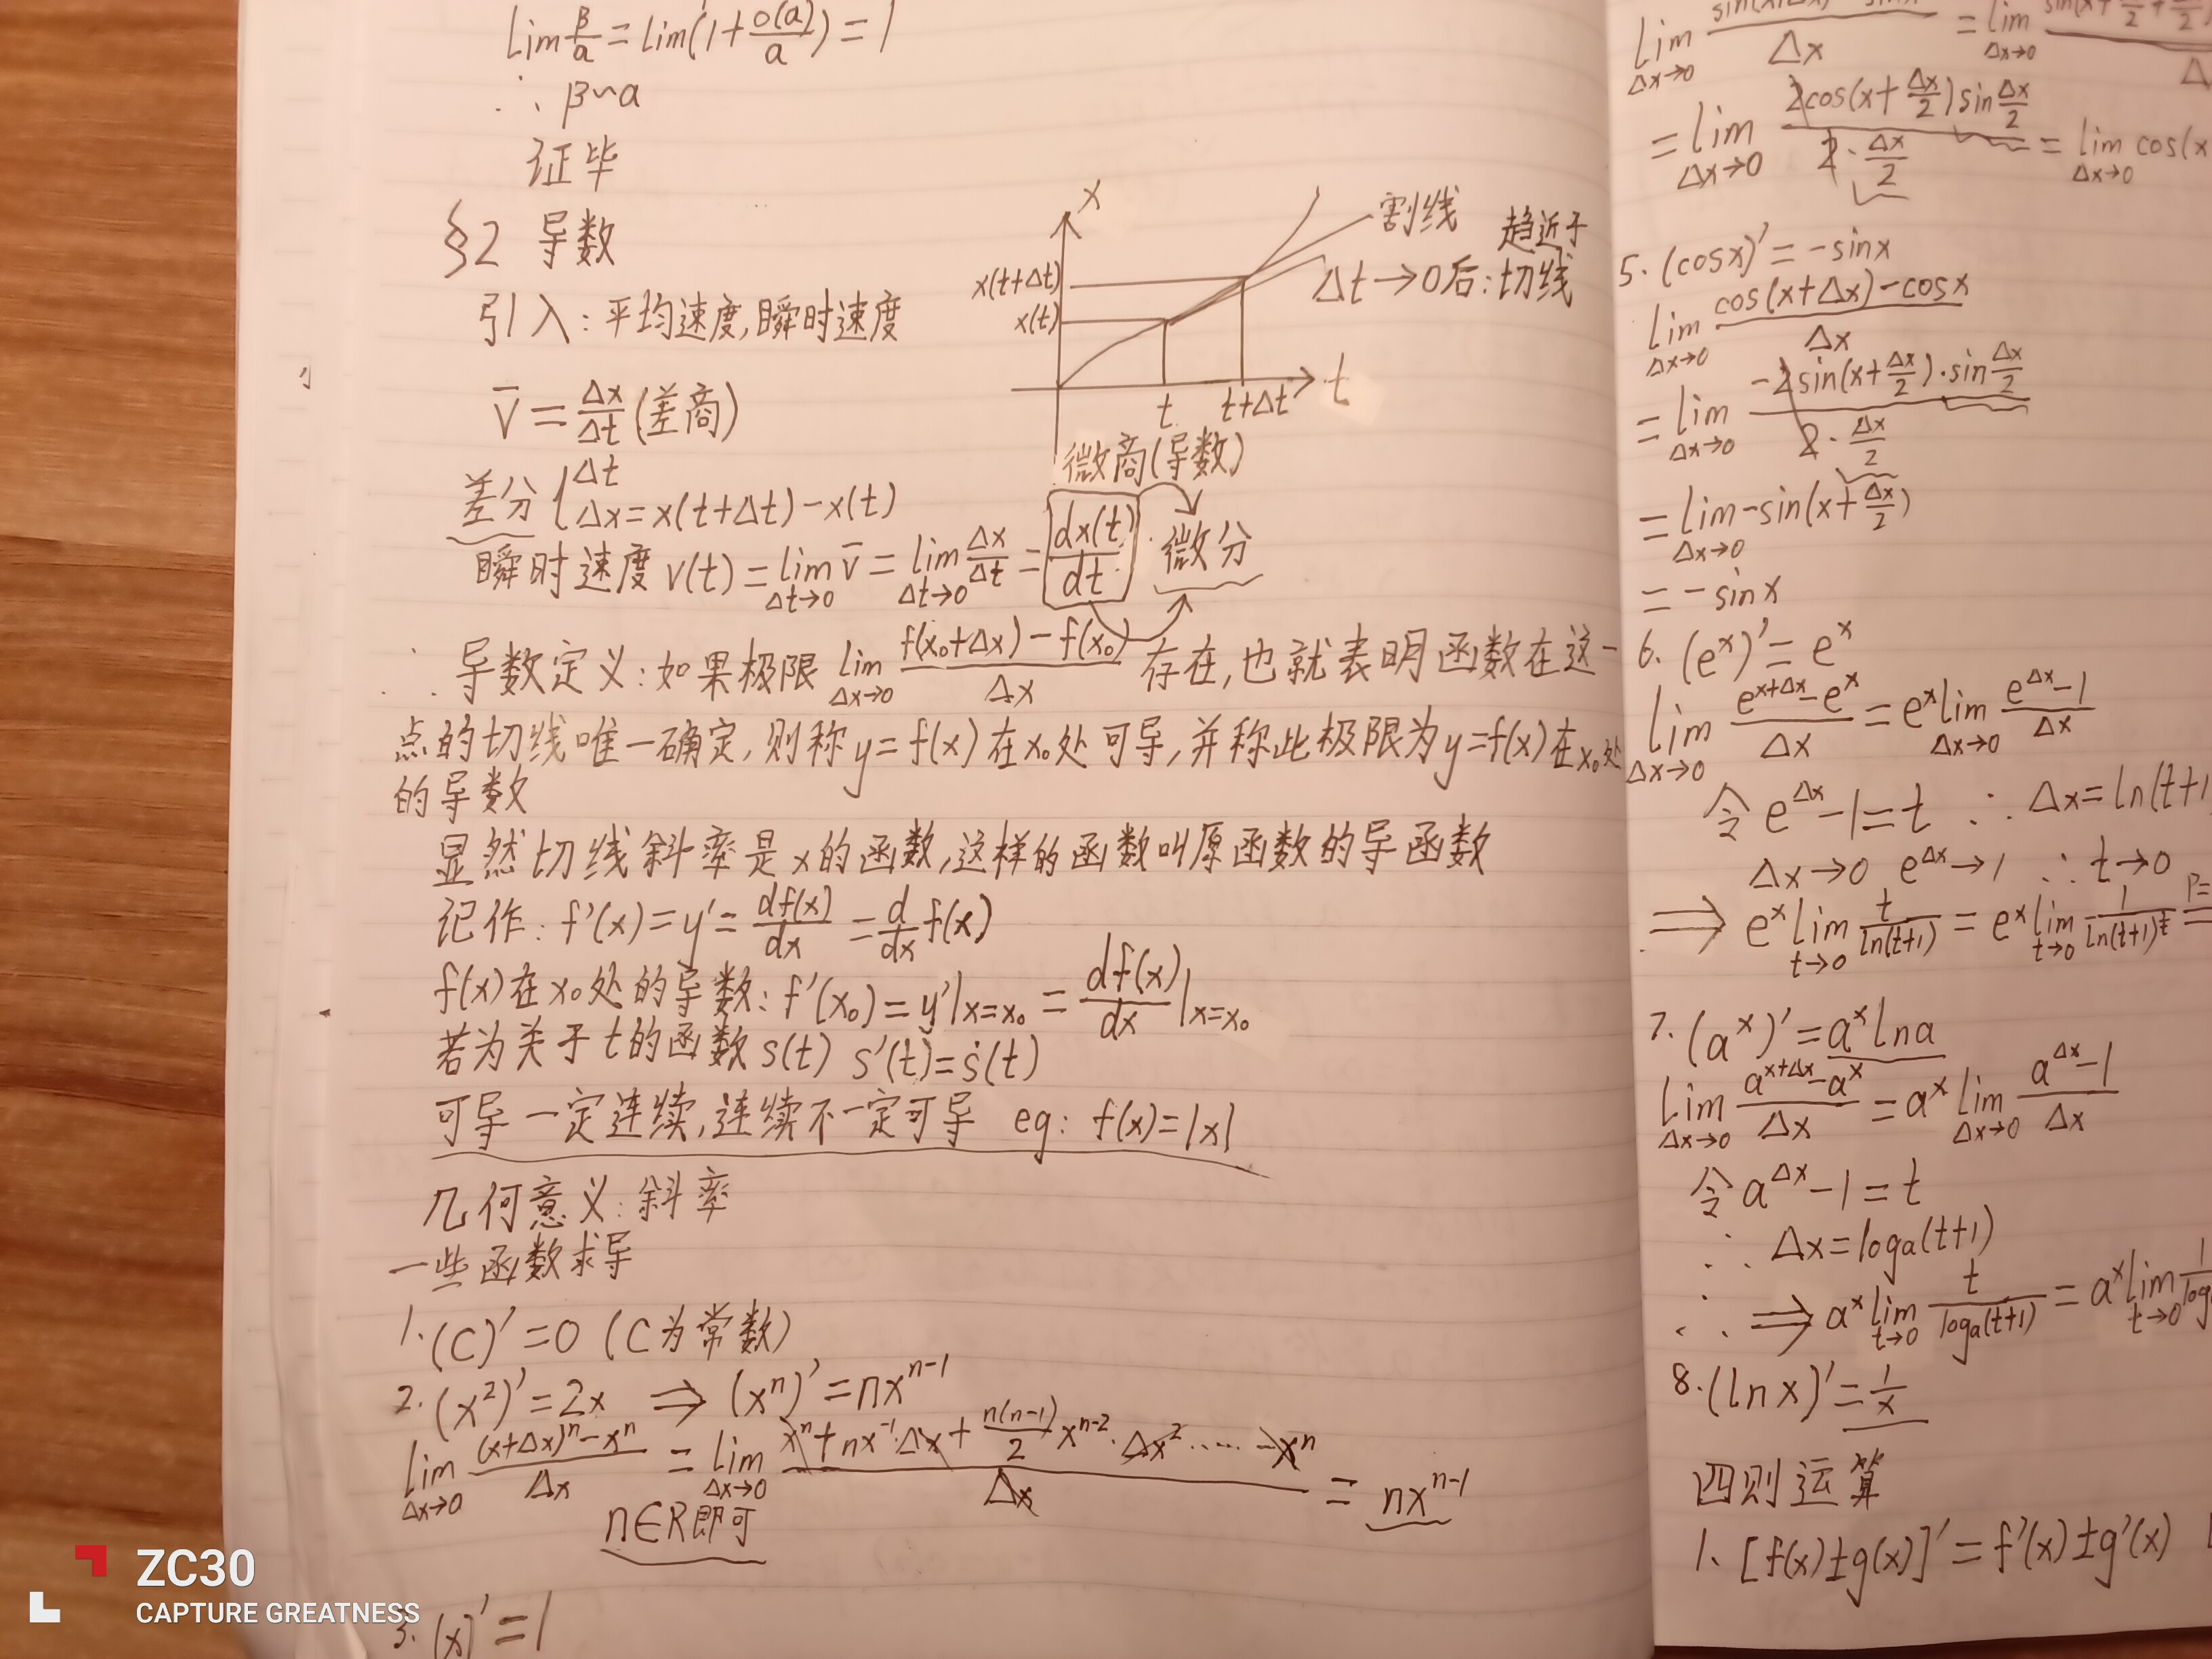 lim β/α = lim(1 + o(α)/α) = 1
∴ β~α
证毕
§2 导数
引入：平均速度,瞬时速度
x
割线
趋近于
Δt→0后：切线
x(t+Δt)
x(t)
t
t+Δt
t
v̄ = Δx/Δt (差商)
差分 { Δt
Δx = x(t+Δt) - x(t)
微商(导数)
瞬时速度 v(t) = lim_{Δt→0} v̄ = lim_{Δt→0} Δx/Δt = dx(t)/dt 微分
∴ 导数定义：如果极限 lim_{Δx→0} (f(x₀+Δx) - f(x₀))/Δx 存在,也就表明函数在这一
点的切线唯一确定,则称 y = f(x) 在 x₀ 处可导,并称此极限为 y=f(x) 在 x₀ 处
的导数
显然切线斜率是 x 的函数,这样的函数叫原函数的导函数
记作：f'(x) = y' = df(x)/dx = d/dx f(x)
f(x)在 x₀ 处的导数：f'(x₀) = y'|x=x₀ = df(x)/dx |x=x₀
若为关于 t 的函数 s(t) s'(t) = ṡ(t)
可导一定连续,连续不一定可导 eg: f(x) = |x|
几何意义：斜率
一些函数求导
1. (C)' = 0 (C为常数)
2. (x²)' = 2x ⇒ (xⁿ)' = nxⁿ⁻¹
lim_{Δx→0} ((x+Δx)ⁿ - xⁿ)/Δx = lim_{Δx→0} (xⁿ + nx⁻¹·Δx + n(n-1)/2 xⁿ⁻²·Δx² ······ - xⁿ)/Δx = nxⁿ⁻¹
n∈R即可
3. (x)' = 1
ZC30
CAPTURE GREATNESS
lim_{Δx→0} /Δx = lim_{Δx→0}
= lim_{Δx→0} 2cos(x + Δx/2) sin Δx/2 / (2·Δx/2) = lim_{Δx→0} cos(x
5. (cosx)' = -sinx
lim_{Δx→0} (cos(x+Δx) - cosx)/Δx
= lim_{Δx→0} -2sin(x + Δx/2)·sin Δx/2 / (2·Δx/2)
= lim_{Δx→0} -sin(x + Δx/2)
= -sinx
6. (eˣ)' = eˣ
lim_{Δx→0} (e^{x+Δx} - eˣ)/Δx = eˣ lim_{Δx→0} (e^{Δx} - 1)/Δx
令 e^{Δx} - 1 = t ∴ Δx = ln(t+1
Δx→0 e^{Δx}→1 ∴ t→0
⇒ eˣ lim_{t→0} t/ln(t+1) = eˣ lim_{t→0} 1/ln(t+1)^{1/t} =
7. (aˣ)' = aˣ lna
lim_{Δx→0} (a^{x+Δx} - aˣ)/Δx = aˣ lim_{Δx→0} (a^{Δx} - 1)/Δx
令 a^{Δx} - 1 = t
∴ Δx = logₐ(t+1)
∴ ⇒ aˣ lim_{t→0} t/logₐ(t+1) = aˣ lim_{t→0} 1/log
8. (lnx)' = 1/x
四则运算
1. [f(x)±g(x)]' = f'(x)±g'(x)